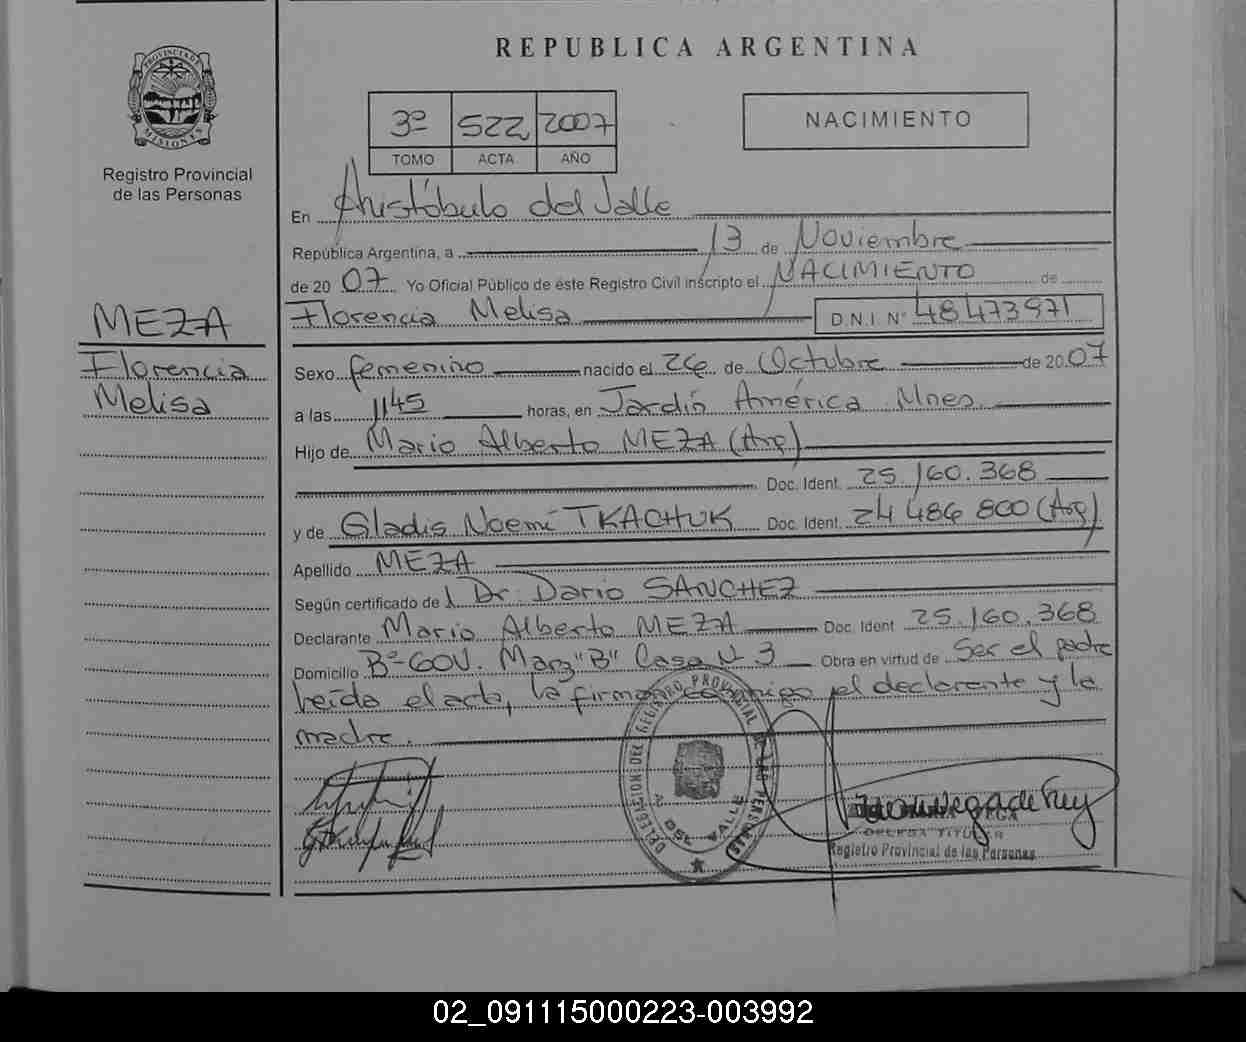 PROVINCIA DE
MISIONES
Registro Provincial
de las Personas
MEZA
Florencia
Melisa
REPUBLICA ARGENTINA
3º 522 2007
TOMO ACTA AÑO
NACIMIENTO
En Aristóbulo del Valle
República Argentina, a 13 de Noviembre
de 20 07 Yo Oficial Público de éste Registro Civil inscripto el NACIMIENTO de
Florencia Melisa D.N.I. Nº 48473971
Sexo femenino nacido el 26 de Octubre de 20 07
a las 1145 horas, en Jardín América Mnes.
Hijo de Mario Alberto MEZA (Arg)
Doc. Ident. 25.160.368
y de Gladis Noemí TKACHUK Doc. Ident. 24 486 800 (Arg)
Apellido MEZA
Según certificado de Dr. Dario SANCHEZ
Declarante Mario Alberto MEZA Doc. Ident 25.160.368
Domicilio Bº GOV. Manz "B" Casa Nº 3 Obra en virtud de Ser el padre
leída el acta, la firman conmigo el declarante y la
madre.
DELEGACION DEL REGISTRO PROVINCIAL DE LAS PERSONAS
A. DEL VALLE
VEGA
TITULAR
Registro Provincial de las Personas
02_091115000223-003992